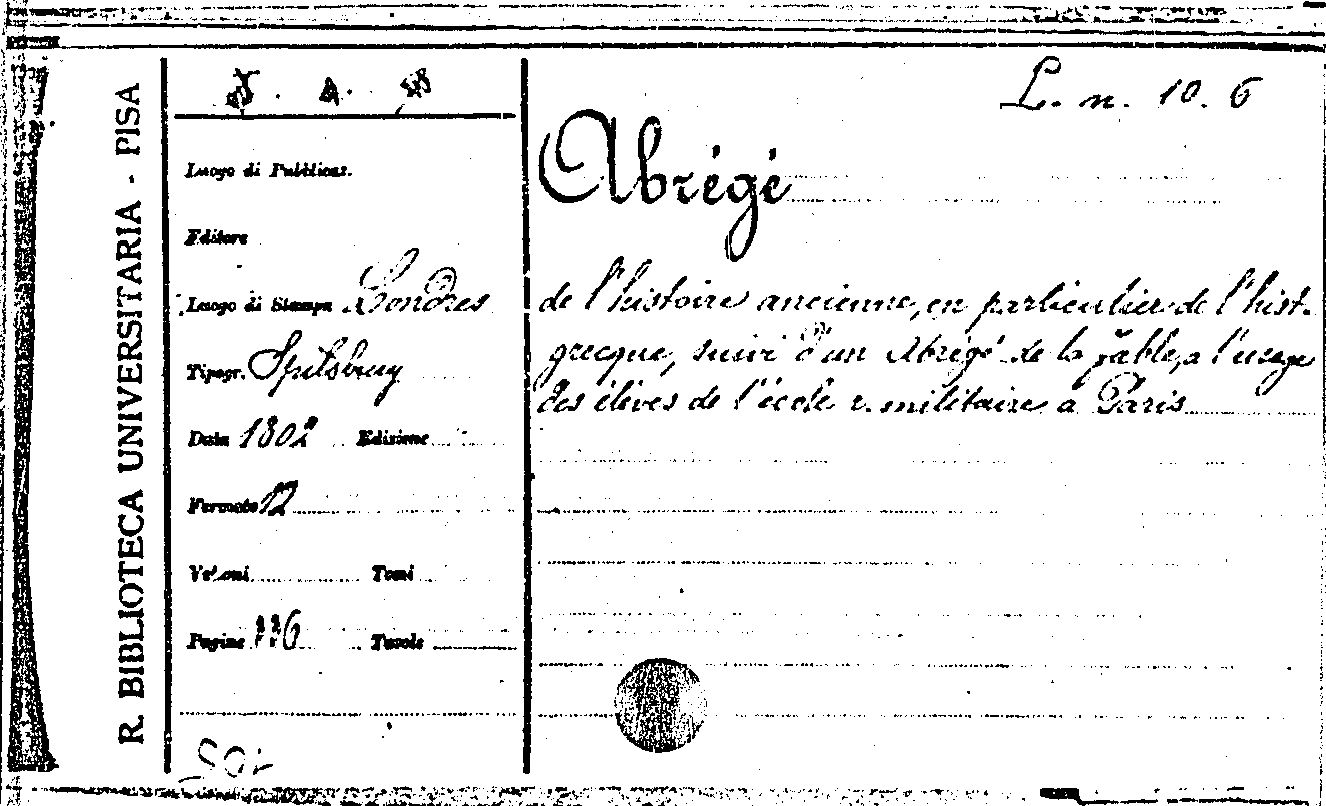 R. BIBLIOTECA UNIVERSITARIA - PISA
L. n. 10. 6
Luogo di Pubblicaz.
Editore
Luogo di Stampa Londres
Tipogr. Spilsbury
Data 1802 Edizione
Formato 12
Volumi Tomi
Pagine 336 Tavole
Abrégé
de l'histoire ancienne, en particulier de l'hist.
grecque, suivi d'un Abrégé de la fable, a l'usage
des élèves de l'école r. militaire a Paris